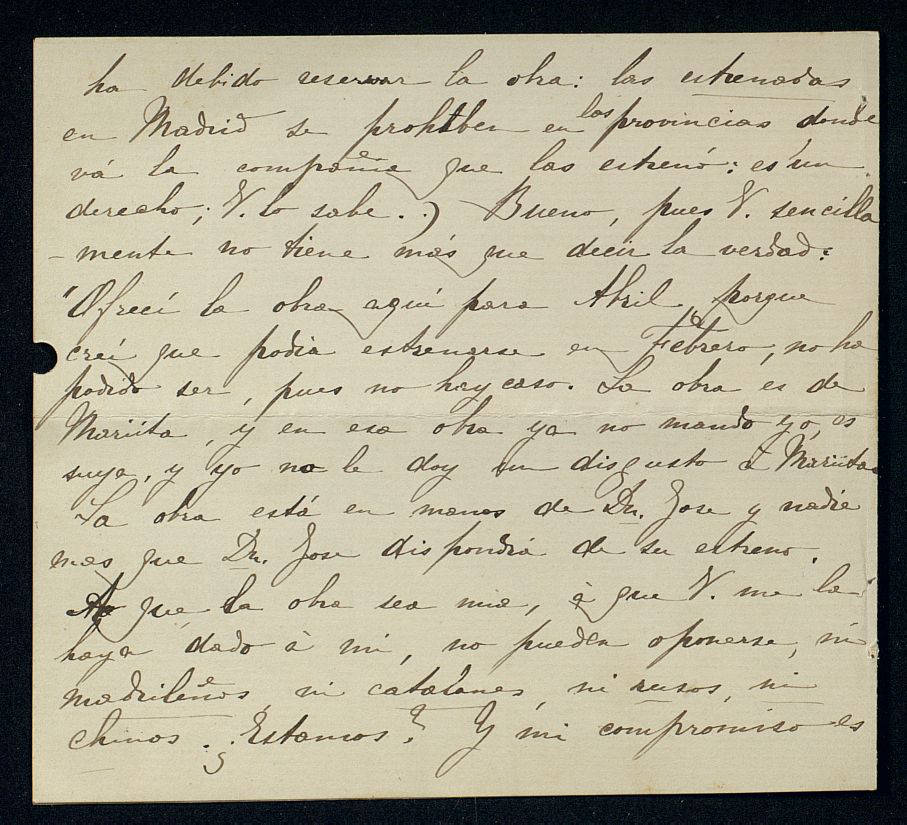 ha debido reservar la obra: las estrenadas
en Madrid se prohiben en las provincias donde
vá la compañia que las estrenó: es un
derecho; V. lo sabe..) Bueno, pues V. sencilla
-mente no tiene más que decir la verdad:
"Ofrecí la obra aquí para Abril, porque
creí que podia estrenarse en Febrero, no ha
podido ser, pues no hay caso. La obra es de
Mariita, y en esa obra ya no mando yo, es
suya, y yo no le doy un disgusto á Mariita.
La obra está en manos de Dn. Jose y nadie
mas que Dn. Jose dispondrá de su estreno.
A que la obra sea mia, á que V. me la
haya dado à mi, no pueden oponerse, ni
madrileños, ni catalanes, ni rusos, ni
chinos. ¿Estamos? Y mi compromiso es